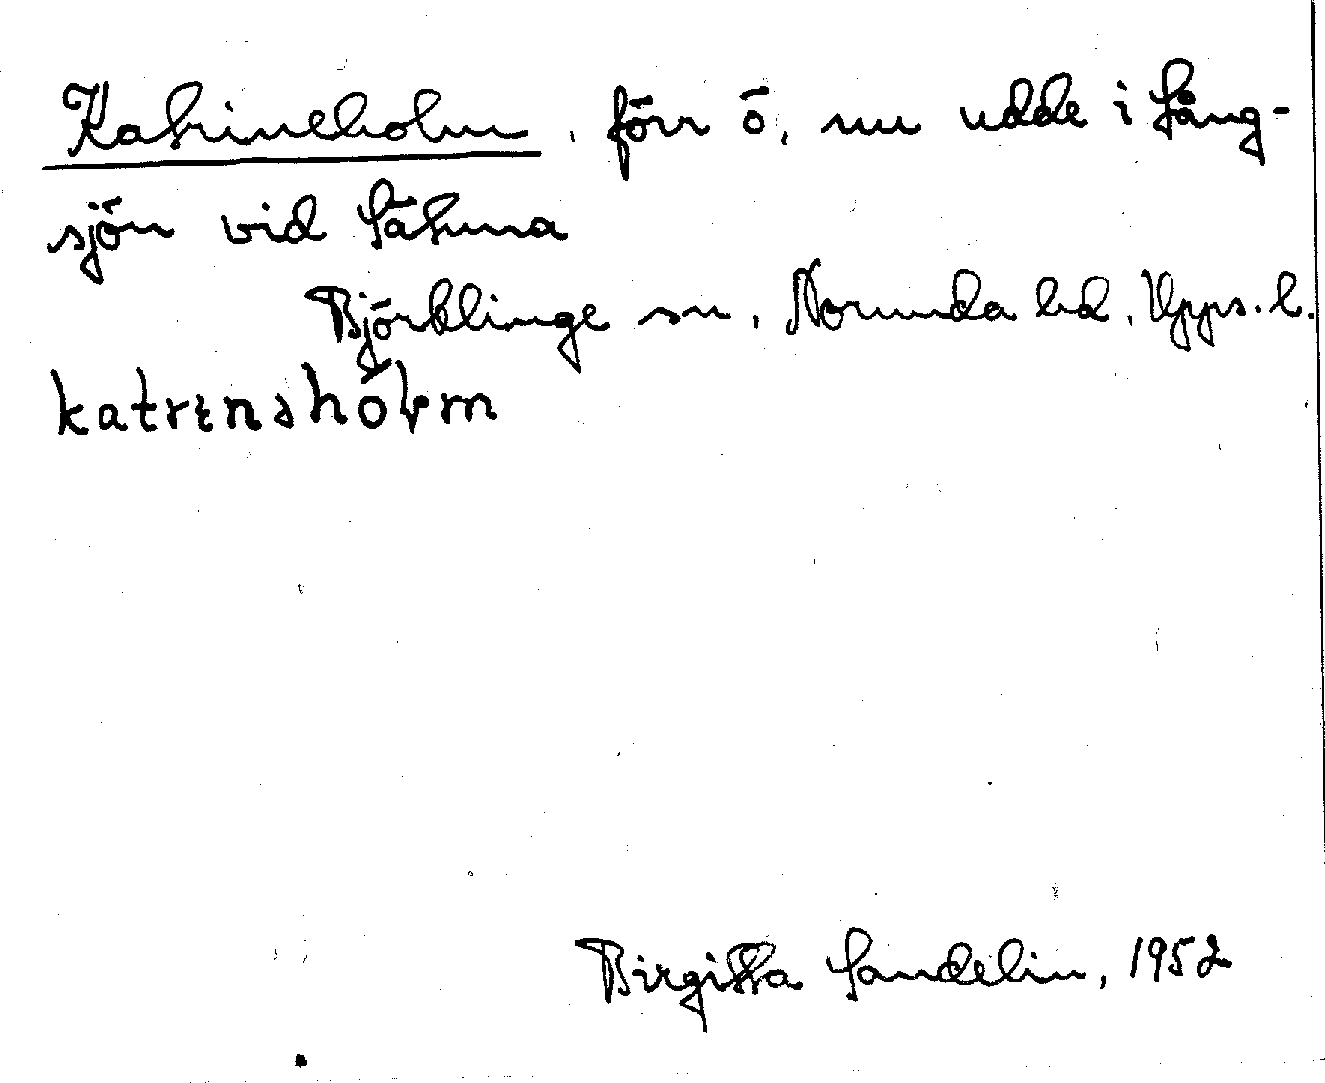 Katrineholm, förr ö, nu udde i Lång-
sjön vid Sätuna
Björklinge sn, Norunda hd, Upps. l.
katrınəhòḷm
Birgitta Sandelin, 1952